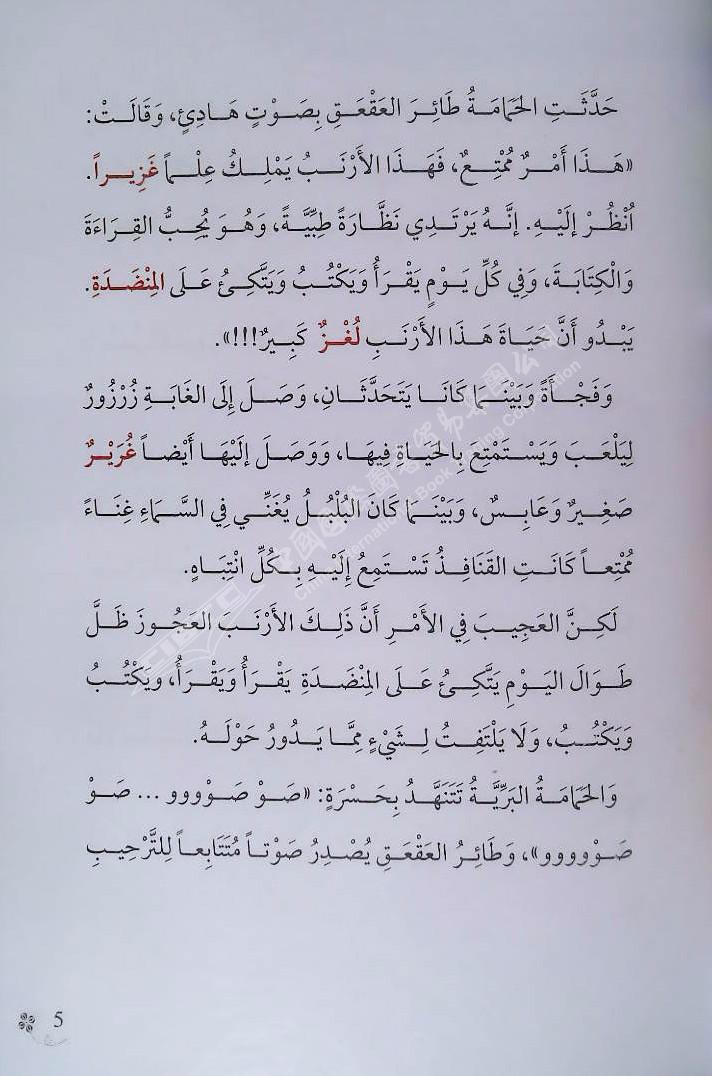 حَدَّثَتِ الحَمَامَةُ طَائِرَ العَقْعَقِ بِصَوْتٍ هَادِئٍ، وَقَالَتْ:
«هَذَا أَمْرٌ مُمْتِعٌ، فَهَذَا الأَرْنَبُ يَمْلِكُ عِلْماً غَزِيراً.
اُنْظُرْ إِلَيْهِ. إِنَّهُ يَرْتَدِي نَظَّارَةً طِبِّيَّةً، وَهُوَ يُحِبُّ القِرَاءَةَ
وَالْكِتَابَةَ، وَفِي كُلِّ يَوْمٍ يَقْرَأُ وَيَكْتُبُ وَيَتَّكِئُ عَلَى المِنْضَدَةِ.
يَبْدُو أَنَّ حَيَاةَ هَذَا الأَرْنَبِ لُغْزٌ كَبِيرٌ!!!».
وَفَجْأَةً وَبَيْنَمَا كَانَا يَتَحَدَّثَانِ، وَصَلَ إِلَى الغَابَةِ زُرْزُورٌ
لِيَلْعَبَ وَيَسْتَمْتِعَ بِالحَيَاةِ فِيهَا، وَوَصَلَ إِلَيْهَا أَيْضاً غُرَيْرٌ
صَغِيرٌ وَعَابِسٌ، وَبَيْنَمَا كَانَ البُلْبُلُ يُغَنِّي فِي السَّمَاءِ غِنَاءً
مُمْتِعاً كَانَتِ القَنَافِذُ تَسْتَمِعُ إِلَيْهِ بِكُلِّ انْتِبَاهٍ.
لَكِنَّ العَجِيبَ فِي الأَمْرِ أَنَّ ذَلِكَ الأَرْنَبَ العَجُوزَ ظَلَّ
طَوَالَ اليَوْمِ يَتَّكِئُ عَلَى المِنْضَدَةِ يَقْرَأُ وَيَقْرَأُ، وَيَكْتُبُ
وَيَكْتُبُ، وَلَا يَلْتَفِتُ لِشَيْءٍ مِمَّا يَدُورُ حَوْلَهُ.
وَالحَمَامَةُ البَرِّيَّةُ تَتَنَهَّدُ بِحَسْرَةٍ: «صَوْ صَوْووو ... صَوْ
صَوْوووو»، وَطَائِرُ العَقْعَقِ يُصْدِرُ صَوْتاً مُتَتَابِعاً لِلتَّرْحِيبِ
5